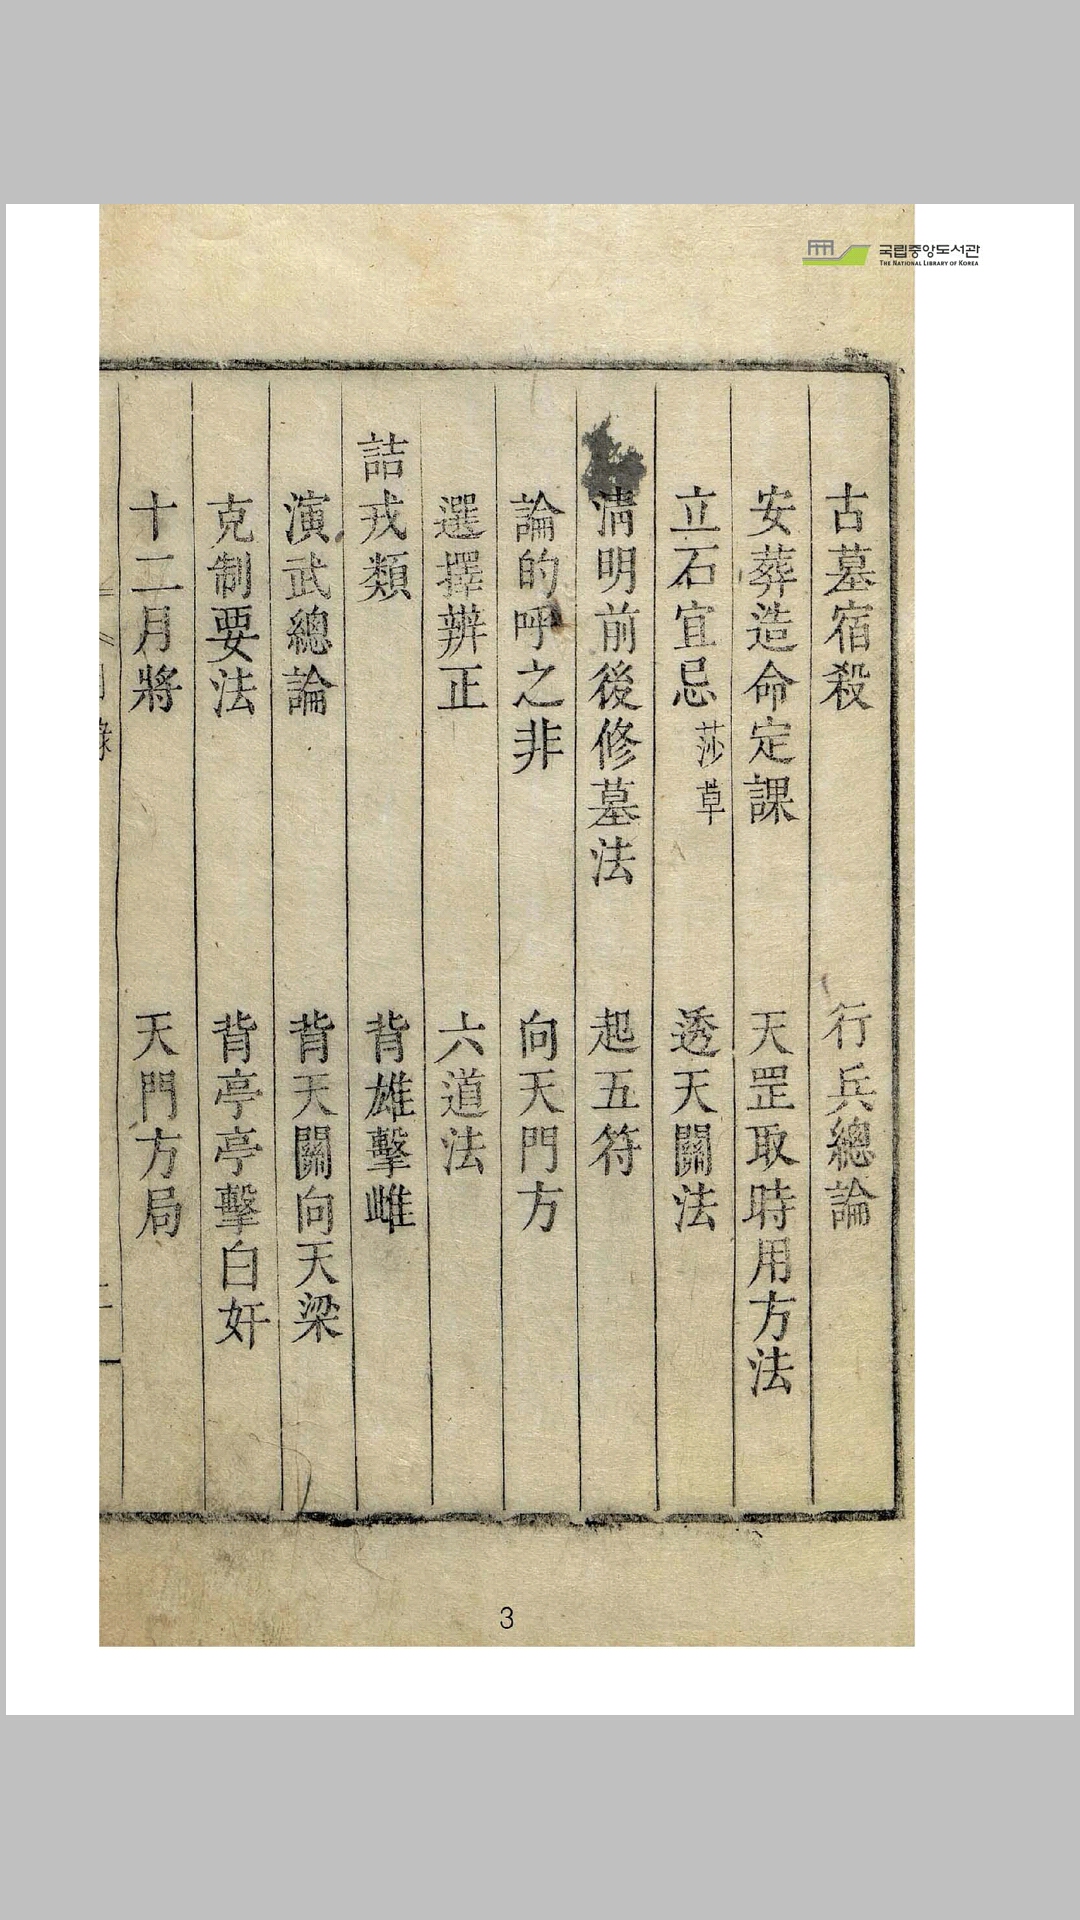 국립중앙도서관
THE NATIONAL LIBRARY OF KOREA
古墓宿殺
安葬造命定課
立石宜忌 莎草
淸明前後修墓法
論的呼之非
選擇辨正
詰戎類
演武總論
克制要法
十二月將
行兵總論
天罡取時用方法
透天關法
起五符
向天門方
六道法
背雄擊雌
背天關向天梁
背亭亭擊白奸
天門方局
3